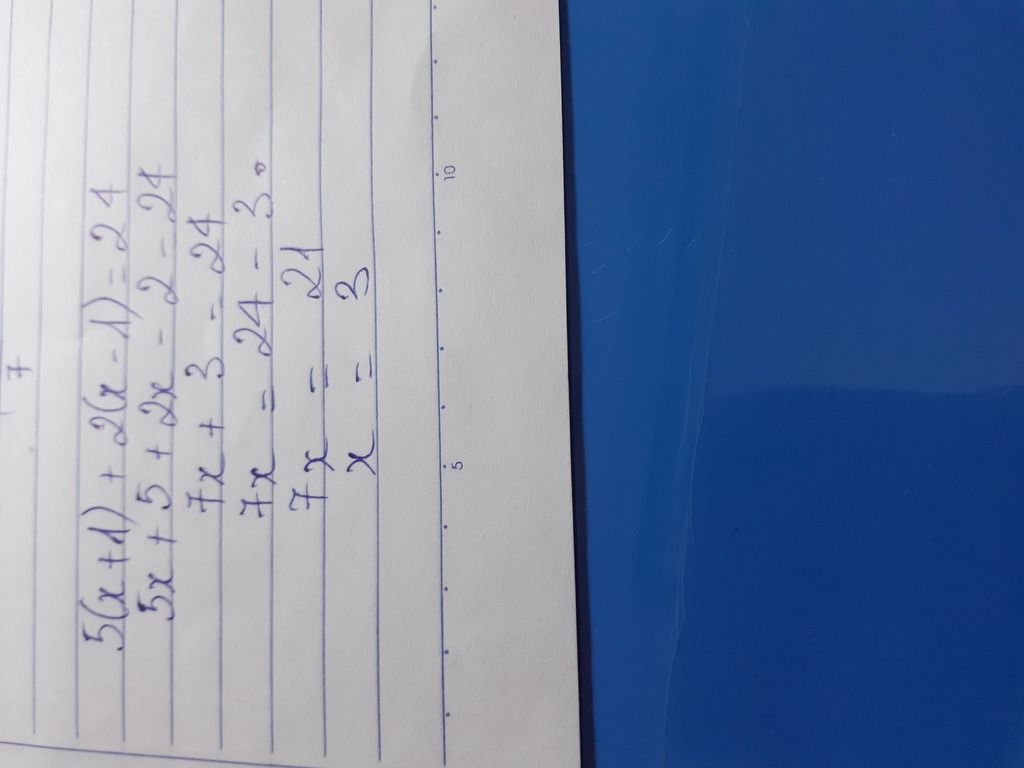 7
5(x+1) + 2(x-1) = 24
5x + 5 + 2x - 2 = 24
7x + 3 = 24
7x = 24 - 3.
7x = 21
x = 3
5 10